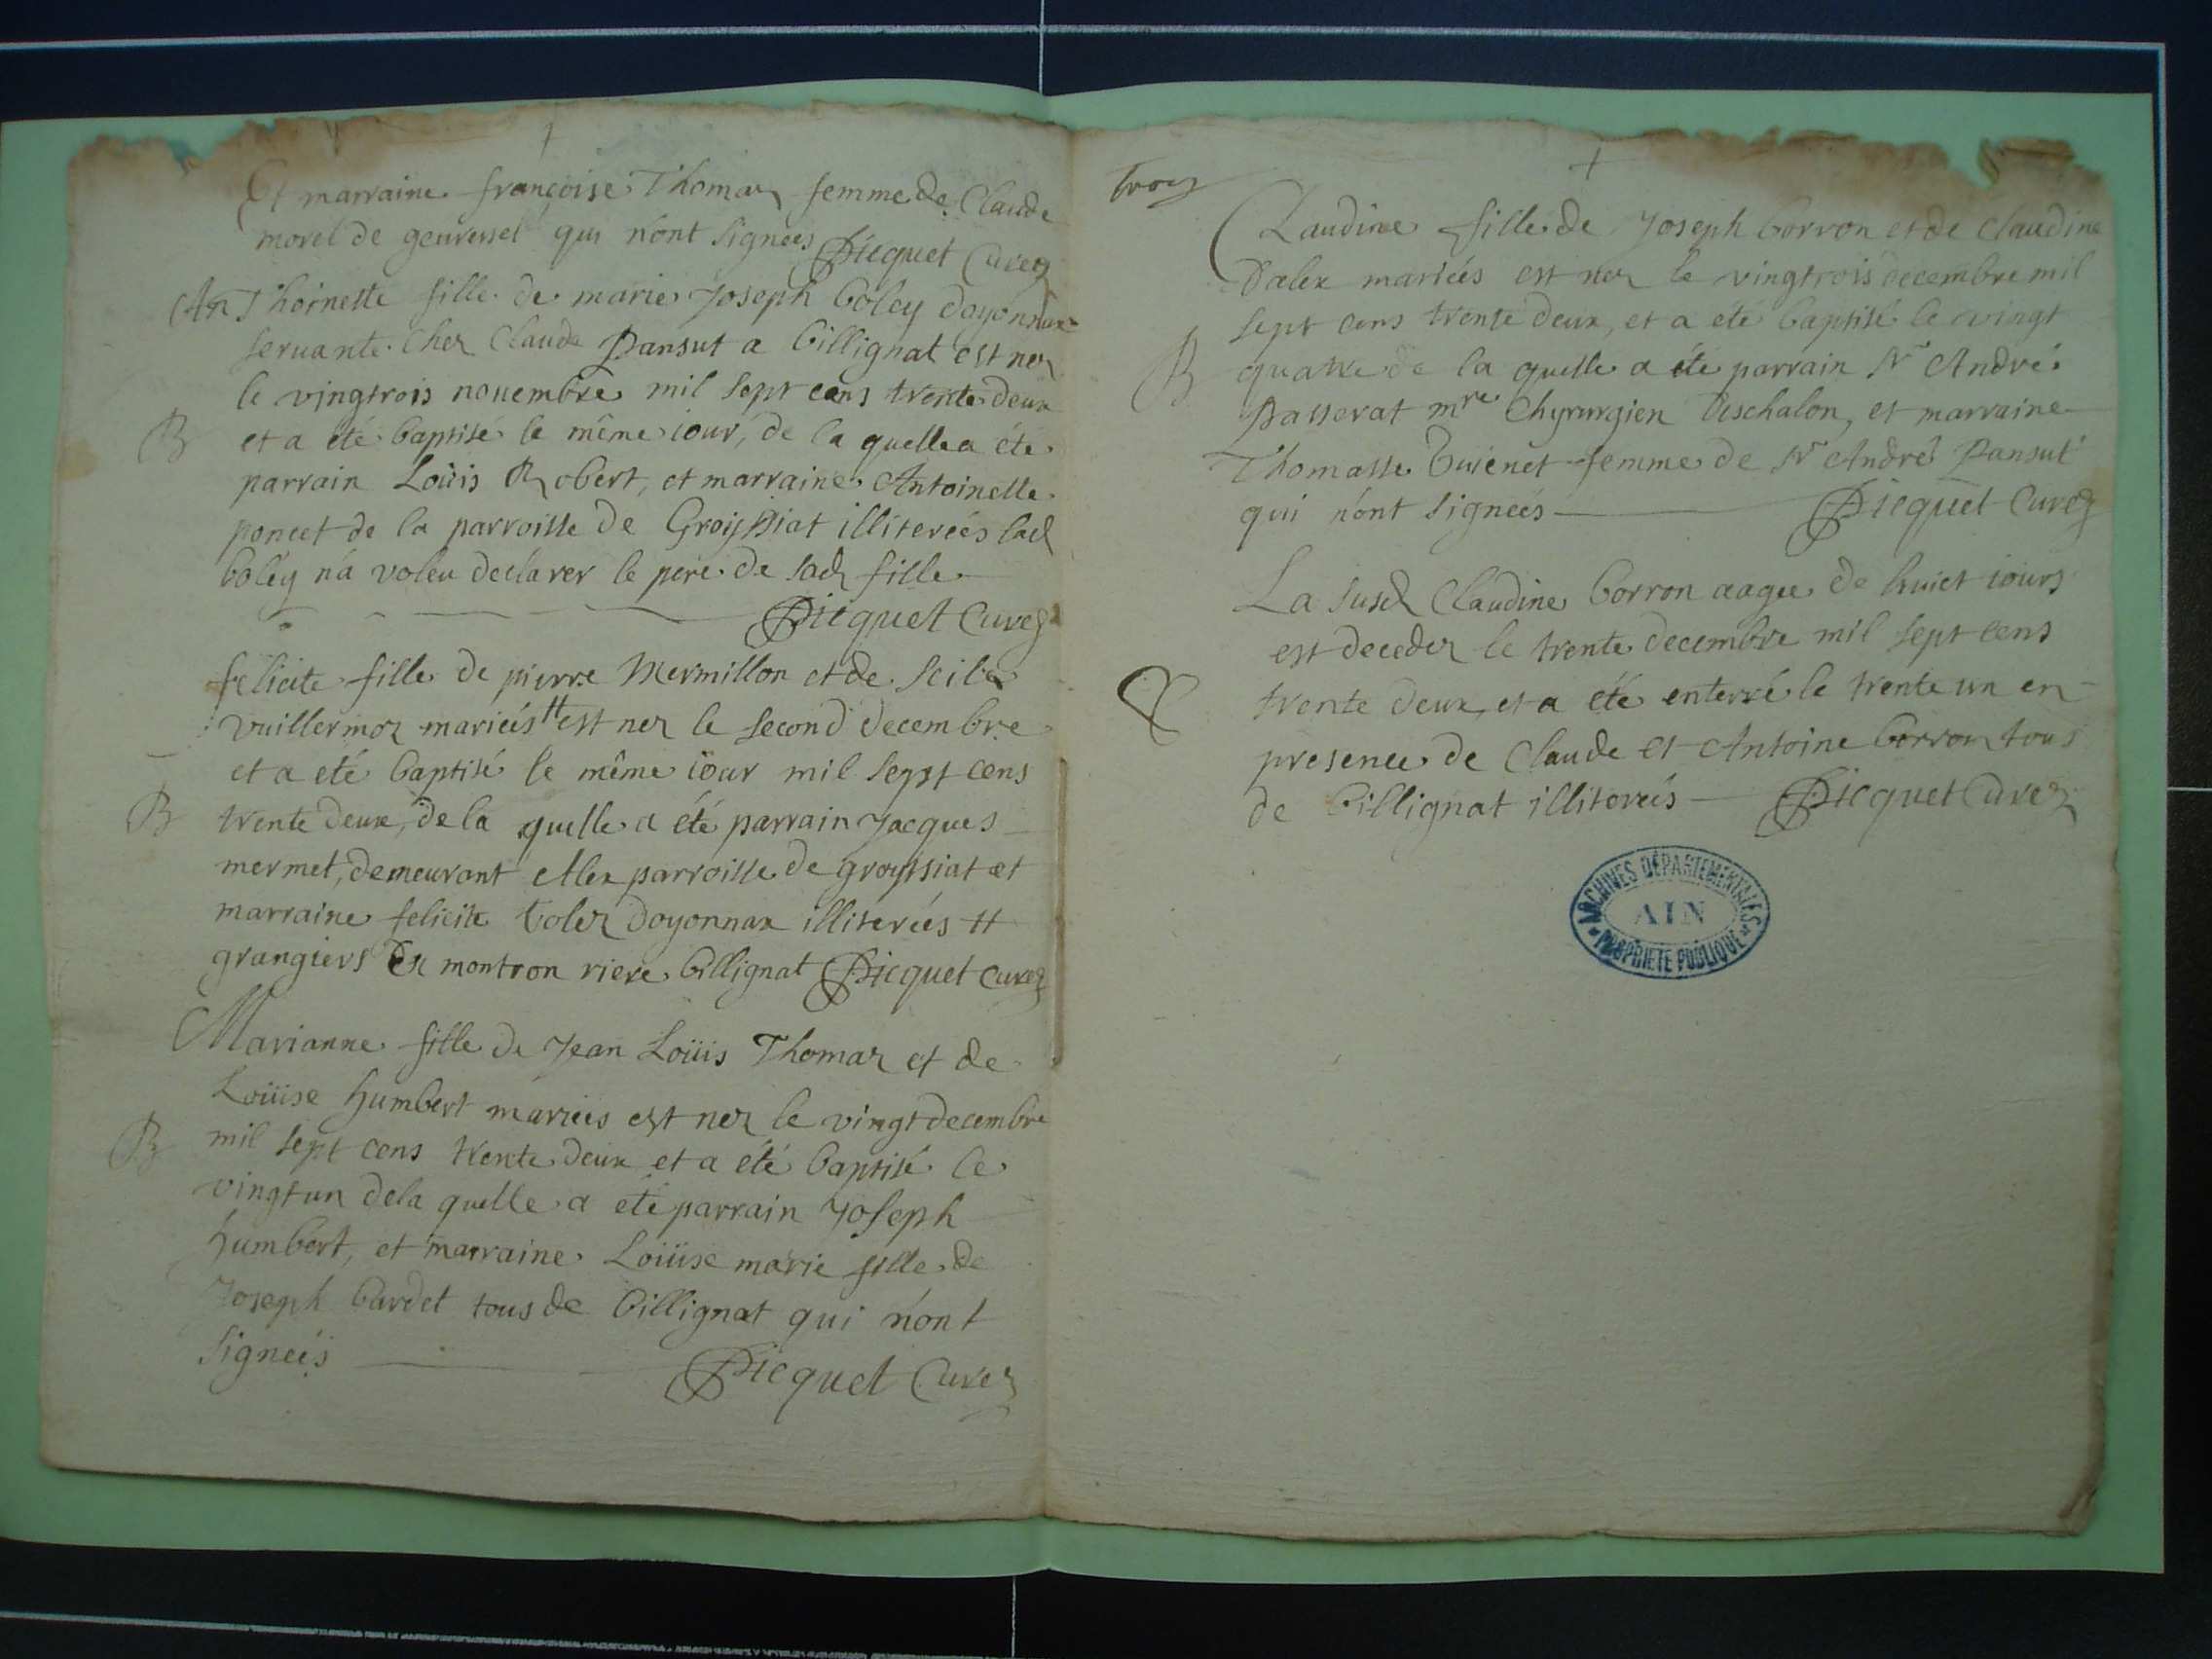 Et marraine françoise Thomaz femme de Claude
morel de geuressel qui n'ont signées Picquet Curez
AnThoinette fille de marie Joseph boley doyonnax
servante chez Claude Pansut a billignat est nez
le vingtrois novembre mil sept cens trente deux
B et a été baptisé le même iour, de la quelle a été
parrain Loüis Robert, et marraine Antoinette
poncet de la parroisse de Groissiat illitereés lad
boley n'a voleu declarer le pere de sad fille
Picquet Curez
felicite fille de pierre Mermillon et de
vuillermoz marieés # est nez le second decembre
et a eté baptisé le même iour mil sept cens
B trente deux, de la quelle a été parrain Jacques
mermet, demeurant parroisse de groyssiat et
marraine felicite bolez doyonnax illitereés #
grangiers en montron riere billignat Picquet Curez
Marianne fille de Jean Loüis Thomaz et de
Loüise humbert marieés est nez le vingt decembre
B mil sept cens trente deux et a été baptisé le
vingt un dela quelle a eté parrain Joseph
humbert, et marraine Loüise marie fille de
Joseph bardet tous de billignat qui n'ont
signeés
Picquet Curez
trois
Claudine fille de Joseph borron et de claudine
Dalex marieés est nez le vingtrois decembre mil
sept cens trente deux, et a eté baptisé le vingt
B quatre de la quelle a été parrain Sr André
Passerat mre Chyrurgien Deschalon, et marraine
Thomasse femme de Sr André Pansut
qui n'ont signeés Picquet Curez
La susd Claudine borron aagee de huict iours
est decedez le trente decembre mil sept cens
trente deux, et a été enterré le trente un en
presence de Claude et Antoine borron tous
de billignat illitereés Picquet Curez
ARCHIVES DÉPARTEMENTALES
AIN
PROPRIETE PUBLIQUE